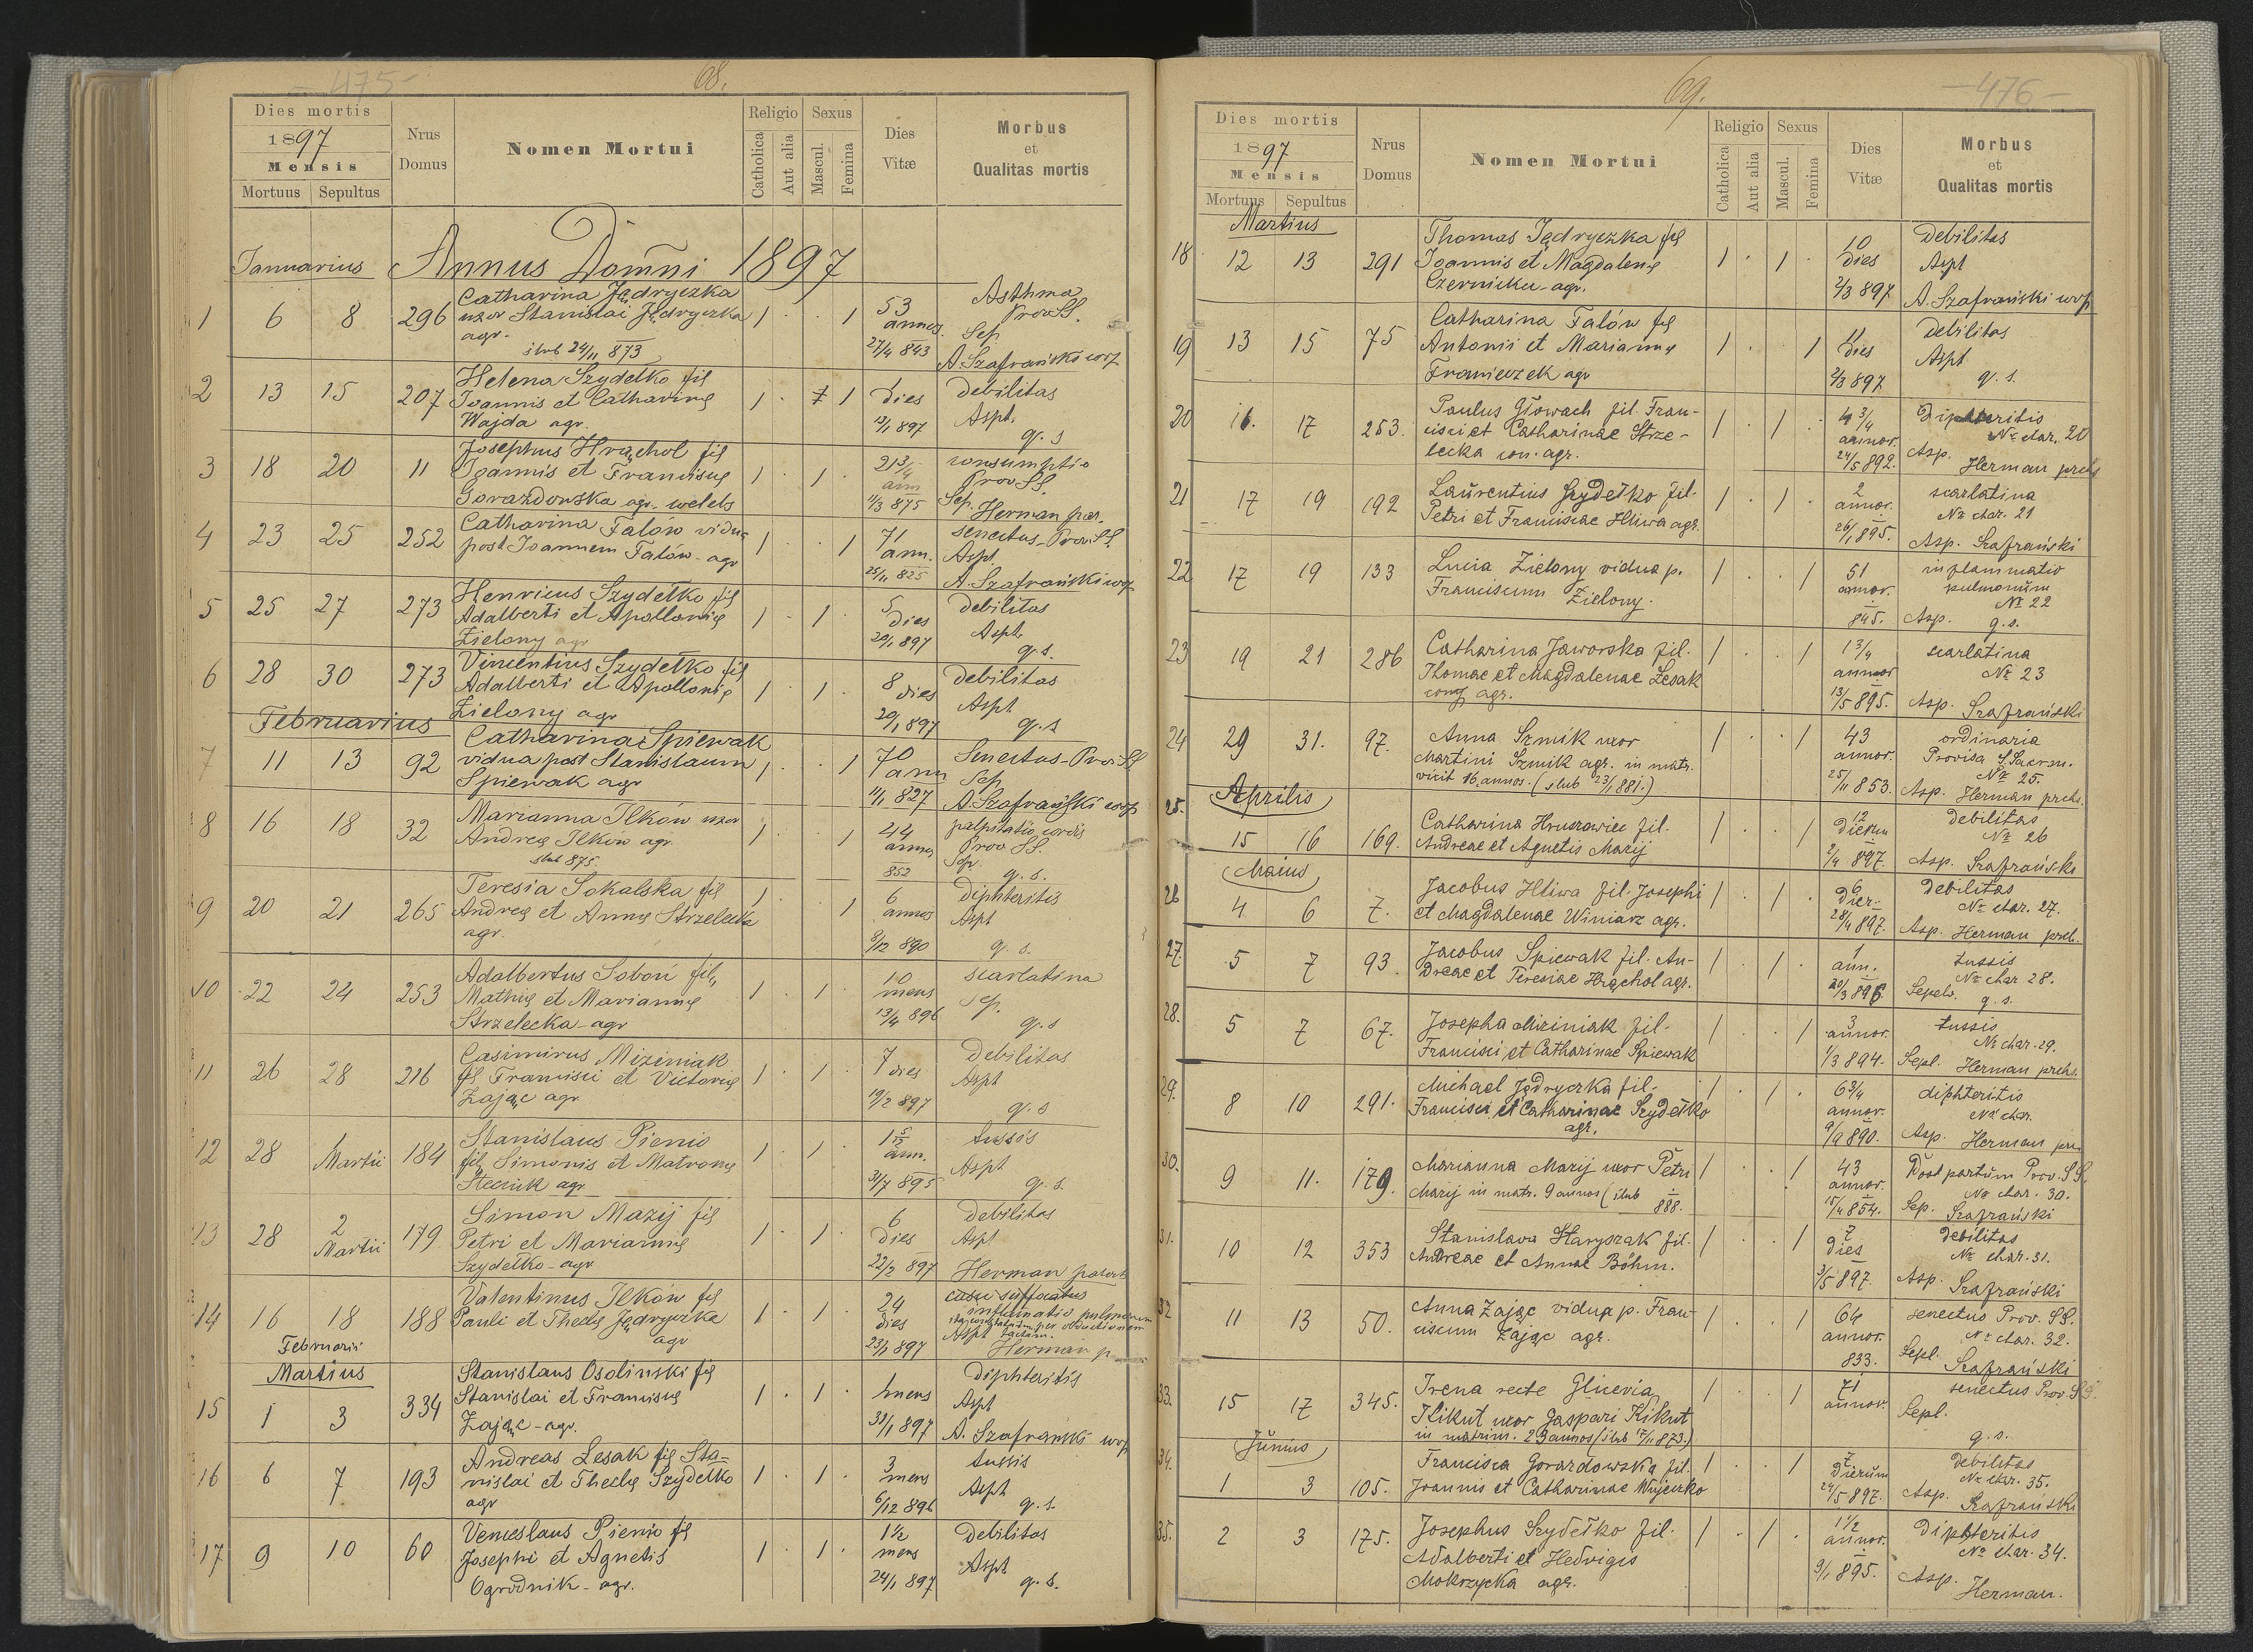 -475-
68.
Dies mortis
1897
Mensis
Mortuus Sepultus
Nrus Domus
Nomen Mortui
Religio
Catholica
Aut alia
Sexus
Mascul.
Femina
Dies Vitæ
Morbus et Qualitas mortis
Januarius Annus Domni 1897
1 6 8 296 Catharina Jędryczka 1 . . 1 53 Asthma
uxor Stanislai Jędryczka annos Prov SS.
agr. Sep
ślub 24/11 873 27/4 843 A. Szafrański wsp
2 13 15 207 Helena Szydełko fil 1 . 1 1 dies debilitas
Joannis et Catharinę Aspt.
Wajda agr. 12/1 897 q. s
3 18 20 11 Josephus Hrąchol fil 1 . 1 . 21 3/4 consumptio
Joannis et Franciscę ann Prov SS.
Gorazdowska agr. 11/3 875 Sep. Herman par.
4 23 25 252 Catharina Falów vidua 1 . . 1 71 senectus-Prov SS
post Joannem Falów-agr ann. Aspt.
25/11 825 A. Szafrański wsp
5 25 27 273 Henricus Szydełko fil 1 . 1 . 5 debilitas
Adalberti et Apollonię dies Aspt.
Zielony agr 20/1 897 q. s.
6 28 30 273 Vincentius Szydełko fil 1 . 1 . 8 debilitas
Adalberti et Apollonię dies Aspt
Zielony agr 20/1 897 q. s
Februarius
7 11 13 92 Catharina Spiewak 1 . . 1 70 Senectus-Prov SS
vidua post Stanislaum ann Sep
Spiewak agr 11/1 827 A. Szafrański wsp
8 16 18 32 Marianna Ilków uxor 1 . . 1 44 palpitatio cordis
Andreę Ilków agr. annos Prov SS.
ślub 875. Sep.
852 q. s.
9 20 21 265 Teresia Sokalska fil 1 . . 1 6 diphteritis
Andreę et Annę Strzelecka annos Aspt
agr. 8/12 890 q. s.
10 22 24 253 Adalbertus Soboń fil 1 . 1 . 10 scarlatina
Mathię et Mariannę mens Sep.
Strzelecka-agr 13/4 896 q. s
11 26 28 216 Casimirus Miziniak 1 . 1 . 7 debilitas
fil Francisci et Victorię dies Aspt
Zając agr 19/2 897 q. s
12 28 Martii 184 Stanislaus Pienio 1 . 1 . 1 5/12 tussis
fil Simonis et Matronę ann. Aspt
Stecuik agr. 31/7 895 q. s.
13 28 2 Martii 179 Simon Mazij fil 1 . 1 . 6 debilitas
Petri et Mariannę dies Aspt
Szydełko-agr 22/2 897 Herman paroch
14 16 18 188 Valentinus Ilków fil 1 . 1 . 24 casu suffocatus
Pauli et Theclę Jędryczka dies inflamatio pulmonum
agr Aspt
Februarii 23/1 897 Herman p
Martius
15 1 3 334 Stanislaus Osolinski fil 1 . 1 . 1 mens diphteritis
Stanislai et Franciscę Aspt
Zając-agr. 31/1 897 A. Szafrański wsp
16 6 7 193 Andreas Lesak fil Sta- 1 . 1 . 3 tussis
nislai et Theclę Szydełko mens Aspt
agr 6/12 896 q. s.
17 9 10 60 Venceslaus Pienio fil 1 . 1 . 1 1/2 debilitas
Josephi et Agnetis mens Aspt
Ogrodnik-agr. 24/1 897 q. s.
69.
-476-
Dies mortis
1897
Mensis
Mortuus Sepultus
Nrus Domus
Nomen Mortui
Religio
Catholica
Aut alia
Sexus
Mascul.
Femina
Dies Vitæ
Morbus et Qualitas mortis
Martius
18 12 13 291 Thomas Jędryczka fil 1 . 1 . 10 debilitas
Joannis et Magdalenę dies Aspt
Czernicka-agr. 2/3 897 A. Szafrański wsp
19 13 15 75 Catharina Falów fil 1 . 1 11 debilitas
Antonii et Mariannę dies Aspt
Franieczek agr 2/3 897 q. s.
20 16. 17 253. Paulus Głowach fil. Fran- 1 . 1 . 4 3/4 Diphteritis
cisci et Catharinae Strze- annor. No char. 20
lecka con. agr. 24/5 892. Asp. Herman prchs
21 17 19 192 Laurentius Szydełko fil. 1 . 1 . 2 scarlatina
Petri et Franciscae Hliwa agr. annor. No char. 21
26/1 895. Asp. Szafrański
22 17 19 133 Lucia Zielony vidua p. 1 . . 1 51 inflammatio
Franciscum Zielony. annor. pulmonum
No 22
845. Asp. q. s.
23 19 21 286 Catharina Jaworska fil. 1 . . 1 1 3/4 scarlatina
Thomae et Magdalenae Lesak annor No 23
conj agr. 13/5 895. Asp. Szafrański
24 29 31. 97. Anna Szmik uxor 1 . . 1 43 ordinaria
Martini Szmik agr. in matr. annor. Provisa S Sacrm.
vixit 16 annos. (ślub 23/1 881.) No 25.
25/11 853. Asp. Herman prchs.
Aprilis
25. 15 16 169. Catharina Hruzowiec fil. 1 . . 1 12 debilitas
Andreae et Agnetis Mazij dierum No 26
2/4 897. Asp. Szafrański
Maius
26 4 6 7. Jacobus Hliwa fil. Josephi 1 . 1 . 6 debilitas
et Magdalenae Winiarz agr. dier. No char. 27.
28/4 897. Asp. Herman prch.
27. 5 7 93. Jacobus Spiewak fil. An- 1 . 1 . 1 tussis
dreae et Teresiae Hrąchol agr. ann. No char 28.
20/3 896 Sepel. q. s.
28. 5 7 67. Josepha Miziniak fil. 1 . . 1 3 tussis
Francisci et Catharinae Spiewak annor. No char. 29.
1/3 894. Sepl. Herman prchs.
29. 8 10 291. Michael Jędryczka fil. 1 . 1 . 6 3/4 diphteritis
Francisci et Catharinae Szydełko annor. No char.
agr. 9/9 890. Asp. Herman prc
30. 9 11. 179. Marianna Mazij uxor Petri 1 . . 1 43 Post partum Prov. SS.
Mazij in matr. 9 annos (ślub 888. annor. No char. 30.
15/4 854. Sep. Szafrański
31. 10 12 353 Stanislava Haryszak fil. 1 . . 1 7 debilitas
Andreae et Annae Böhm. dies No char. 31.
3/5 897. Asp. Szafrański
32 11 13 50. Anna Zając vidua p. Fran- 1 . . 1 64 senectus Prov. SS.
ciscum Zając agr. annor. No char. 32.
833. Sepl. Szafrański
33. 15 17 345. Irena recte Glicevia 1 . . 1 71 senectus Prov SS.
Kikut uxor Gaspari Kikut annor. Sepl.
in matrim. 23 annos (ślub 17/11 873.) q. s.
Junius
34. 1 3 105. Francisca Gorazdowska fil. 1 . . 1 7 debilitas
Joannis et Catharinae Wujeczko dierum No char. 35.
24/5 897. Asp. Szafrański
35. 2 3 175. Josephus Szydełko fil. 1 . 1 . 1 1/2 Diphteritis
Adalberti et Hedvigis annor. No char. 34.
Mokrzycka agr. 9/1 895. Asp. Herman.